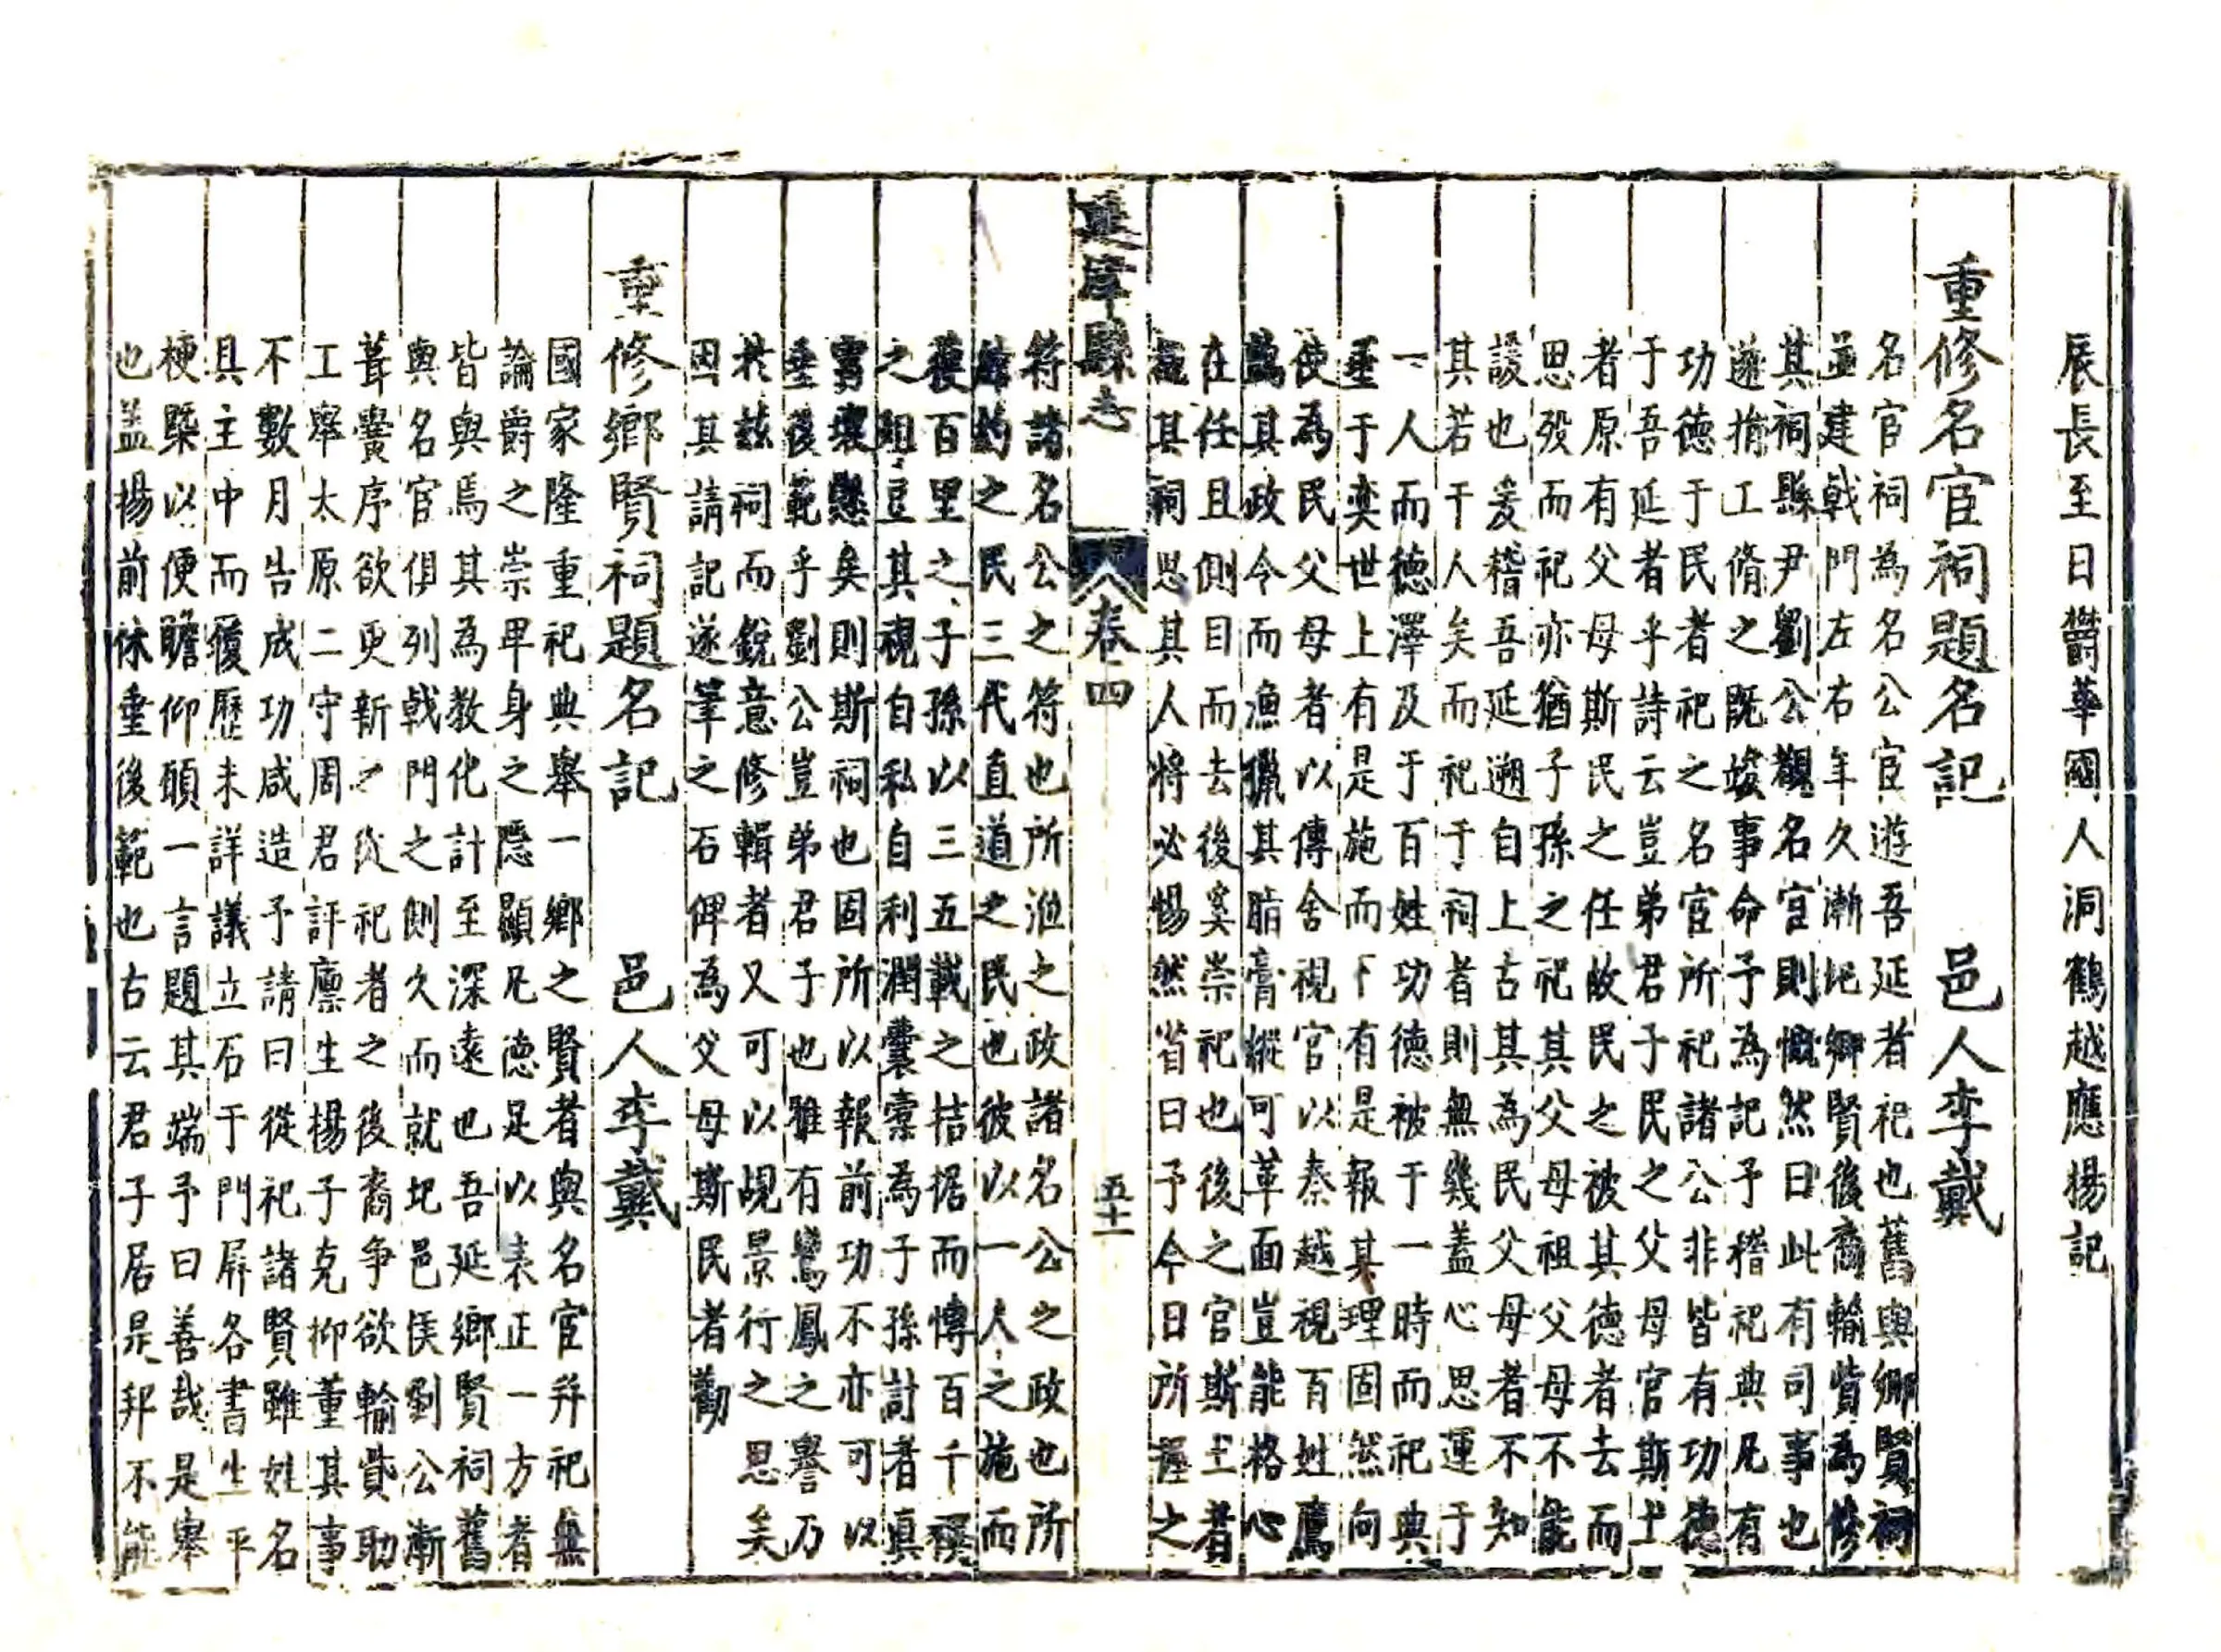 辰長至日欝華國人洞鶴越應揚記
重修名宦祠題名記 邑人李戴
名宦祠為名公宦遊吾延者祀也舊與鄉賢祠
並建戟門左右年久漸圮鄉賢後裔輸貲為修
其祠縣尹劉公觀名宦則慨然曰此有司事也
遂捐工脩之既竣事命予為記予稽祀典凡有
功德于民者祀之名宦所祀諸公非皆有功德
于吾延者乎詩云豈弟君子民之父母官斯土
者原有父母斯民之任故民之被其德者去而
思發而祀亦猶子孫之祀其父母祖父母不能
設也爰稽吾延遡自上古其為民父母者不知
其若干人矣而祀于祠者則無幾蓋心思運于
一人而德澤及于百姓功德被于一時而祀典
垂于奕世上有是施而下有是報其理固然向
使為民父母者以傳舍視官以秦越視百姓鷹
鸇其政令而漁獵其脂膏縱可革面豈能格心
在任且側目而去後奚崇祀也後之官斯土者
過其祠思其人將必惕然省曰予今日所握之
延津縣志 卷四 五十一
符諸名公之符也所涖之政諸名公之政也所
之民三代直道之民也彼以一人之施而
獲百里之子孫以三五載之拮据而慱百千禩
之俎豆其視自私自利潤囊橐為子孫計者真
霄壤懸矣則斯祠也固所以報前功不亦可以
垂後範乎劉公豈弟君子也雅有鸞鳳之譽乃
於玆祠而銳意修輯者又可以覘景行之思矣
因其請記遂筆之石俾為父母斯民者勸
重修鄉賢祠題名記 邑人李戴
國家隆重祀典舉一鄉之賢者與名宦并祀無
論爵之崇卑身之隱顯凡德足以表正一方者
皆與焉其為教化計至深遠也吾延鄉賢祠舊
與名宦俱列戟門之側久而就圮邑侯劉公漸
葺黌序欲更新之從祀者之後裔争欲輸貲助
工舉太原二守周君評廪生楊子克抑董其事
不數月告成功咸造予請曰從祀諸賢雖姓名
具主中而履歷未詳議立石于門屏各書生平
梗槩以便瞻仰願一言題其端予曰善哉是舉
也盖揚前休垂後範也古云君子居是邦不能